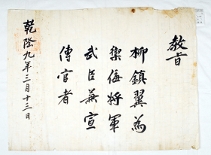 教旨
柳鎭翼爲
禦侮將軍
武臣兼宣
傳官者
乾隆九年三月十三日